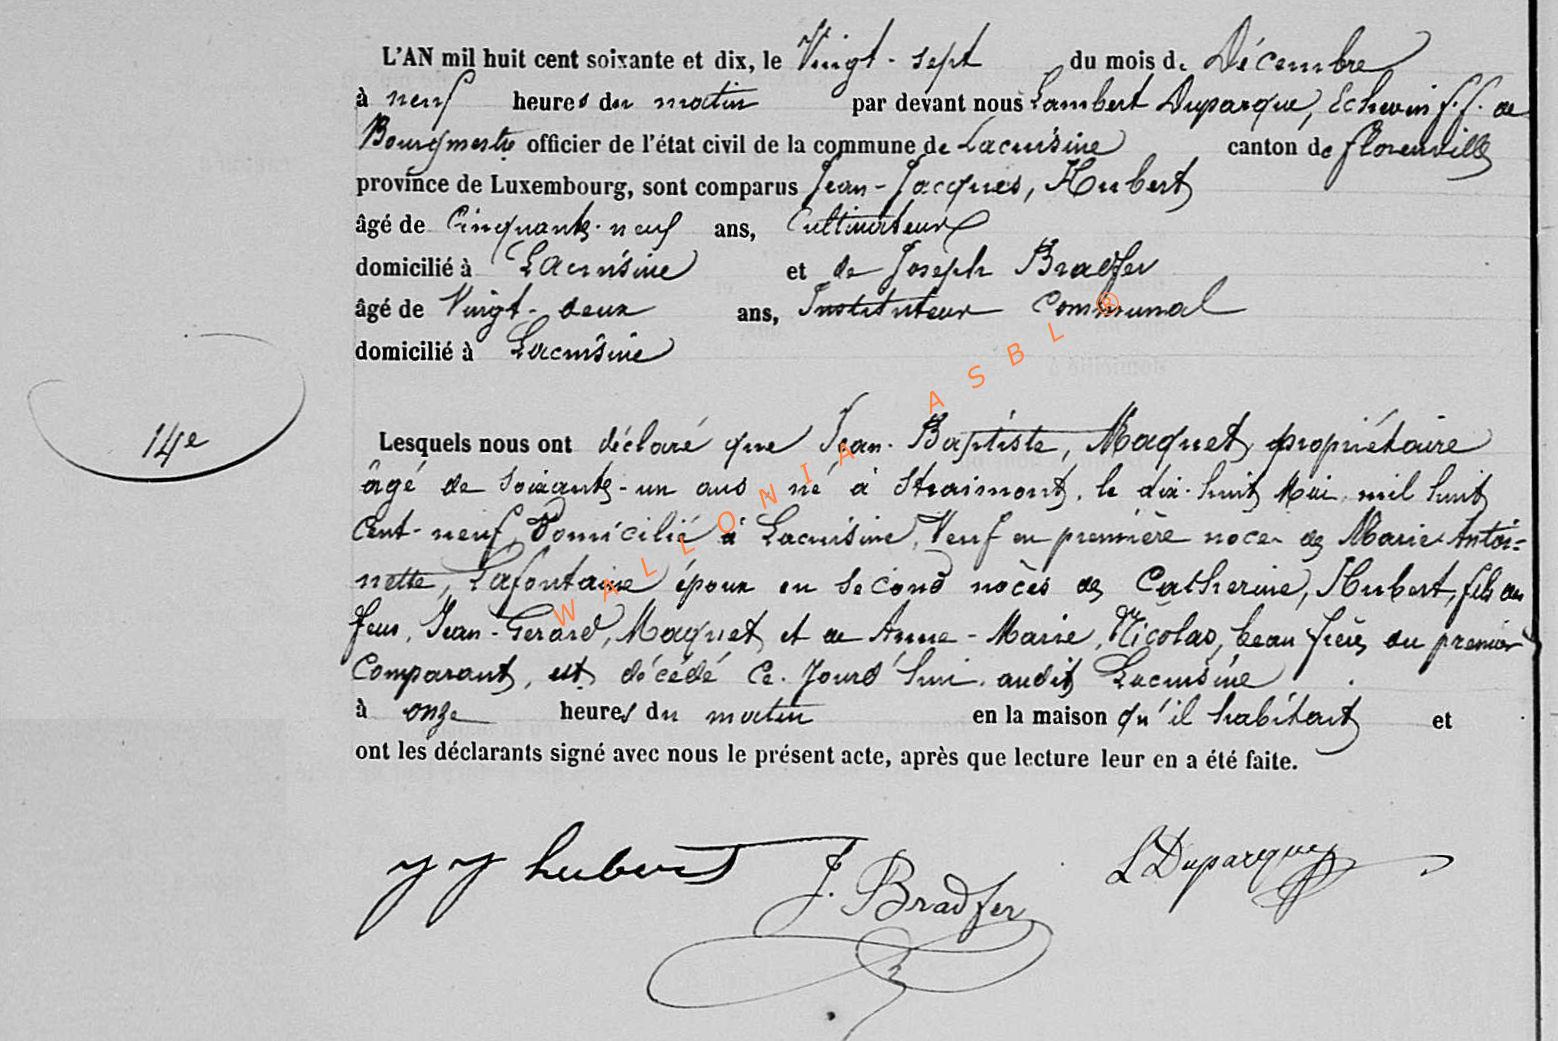 L'AN mil huit cent soixante et dix, le Vingt-sept du mois de Décembre
à neuf heures du matin par devant nous Lambert Duparque, Echevin f.f. de
Bourgmestre officier de l'état civil de la commune de Lacuisine canton de florenville
province de Luxembourg, sont comparus Jean-Jacques, Hubert
âgé de Cinquante-neuf ans, Cultivateur
domicilié à Lacuisine et de Joseph Bradfer
âgé de Vingt-deux ans, Instituteur Communal
domicilié à Lacuisine
14e
Lesquels nous ont déclaré que Jean-Baptiste, Maquet, propriétaire
âgé de soixante-un ans, né à Straimont, le dix-huit Mai mil huit
Cent-neuf, Domicilié à Lacuisine, Veuf en première noces de Marie-Antoi=
nette, Lafontaine époux en second noces de Catherine, Hubert, fils de
feus, Jean-Gerard, Maquet et de Anne-Marie, Nicolas, beau frère du premier
Comparant, est décédé Ce Jourd'hui audit Lacuisine
à onze heures du matin en la maison qu'il habitait et
ont les déclarants signé avec nous le présent acte, après que lecture leur en a été faite.
JJ hubert J. Bradfer L Duparque
WALLONIA ASBL ®